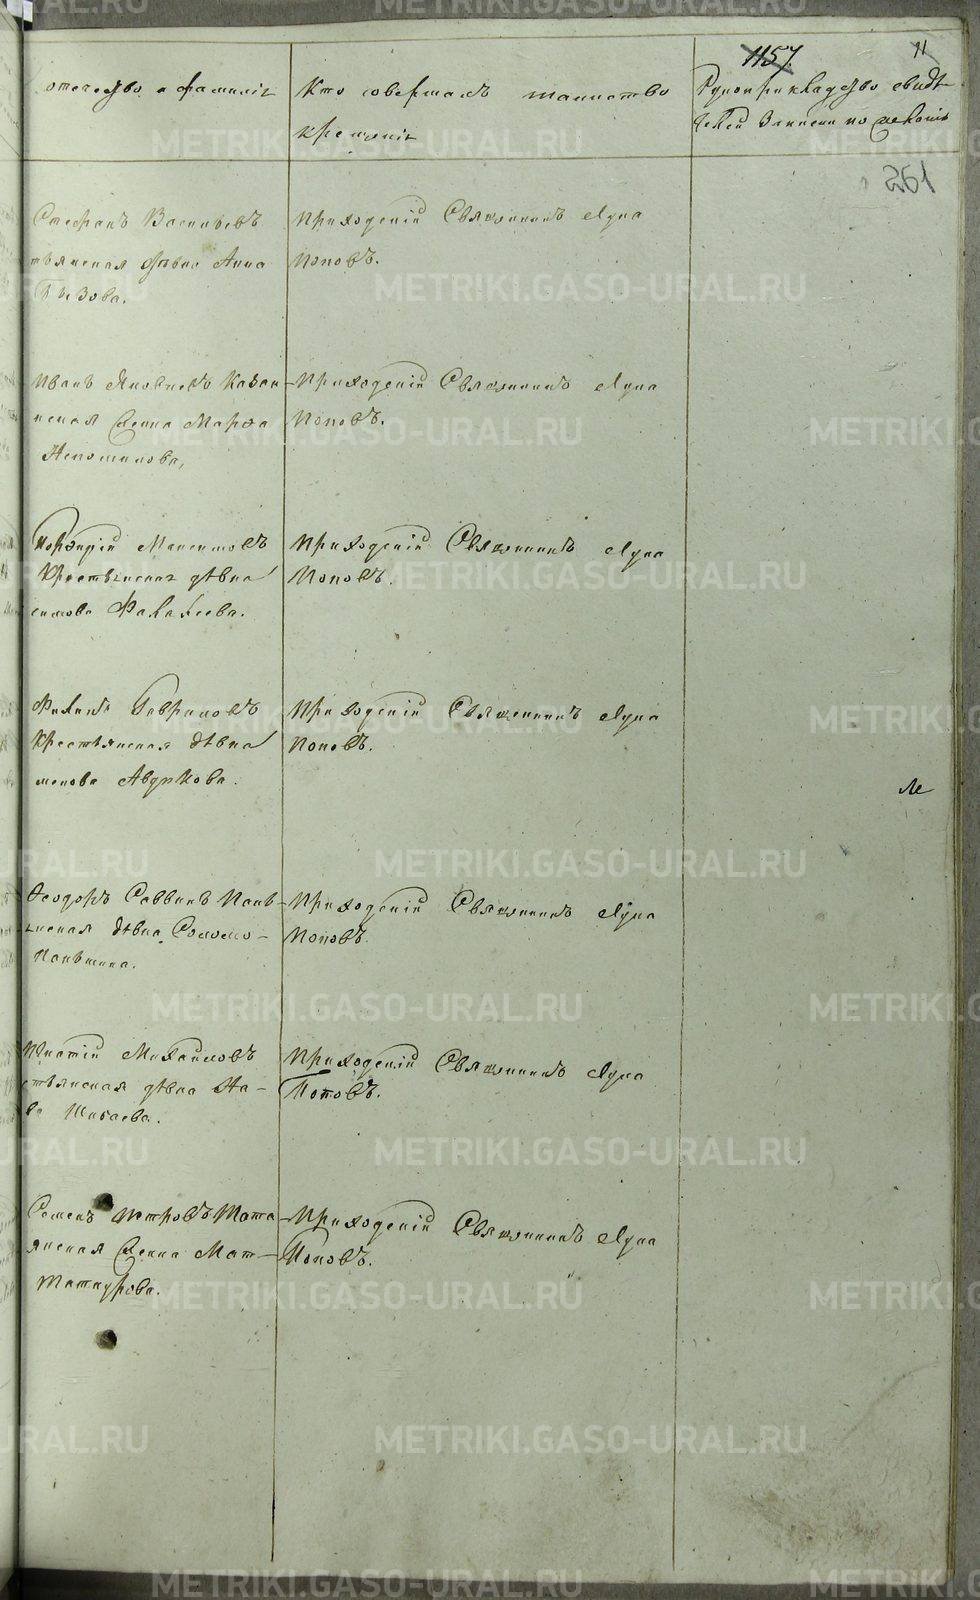 1157. 11
отечество и фамилія
Кто совершалъ таинство
крещенія
Рукоприкладство свидѣ-
телей записи по желанію
261
Стефанъ Васильевъ
тьянская дѣвка Анна
Приходскій Священникъ Лука
Поповъ.
Иванъ Яковлевъ Казан-
нская Женка Марѳа
Приходскій Священникъ Лука
Поповъ.
Порфирій Максимовъ
Крестьянская дѣвка
симова Фалалеева.
Приходскій Священникъ Лука
Поповъ.
Филипъ Гавриловъ
Крестьянская дѣвка
Приходскій Священникъ Лука
Поповъ.
Ѳеодоръ Саввинъ Пань-
янская дѣвка Соломо-
Паньшина.
Приходскій Священникъ Лука
Поповъ.
Игнатій Михайловъ
стьянская дѣвка На-
Приходскій Священникъ Лука
Поповъ.
Семенъ Петровъ Тата-
янская Женка Мат-
Татаурова.
Приходскій Священникъ Лука
Поповъ.
METRIKI.GASO-URAL.RU